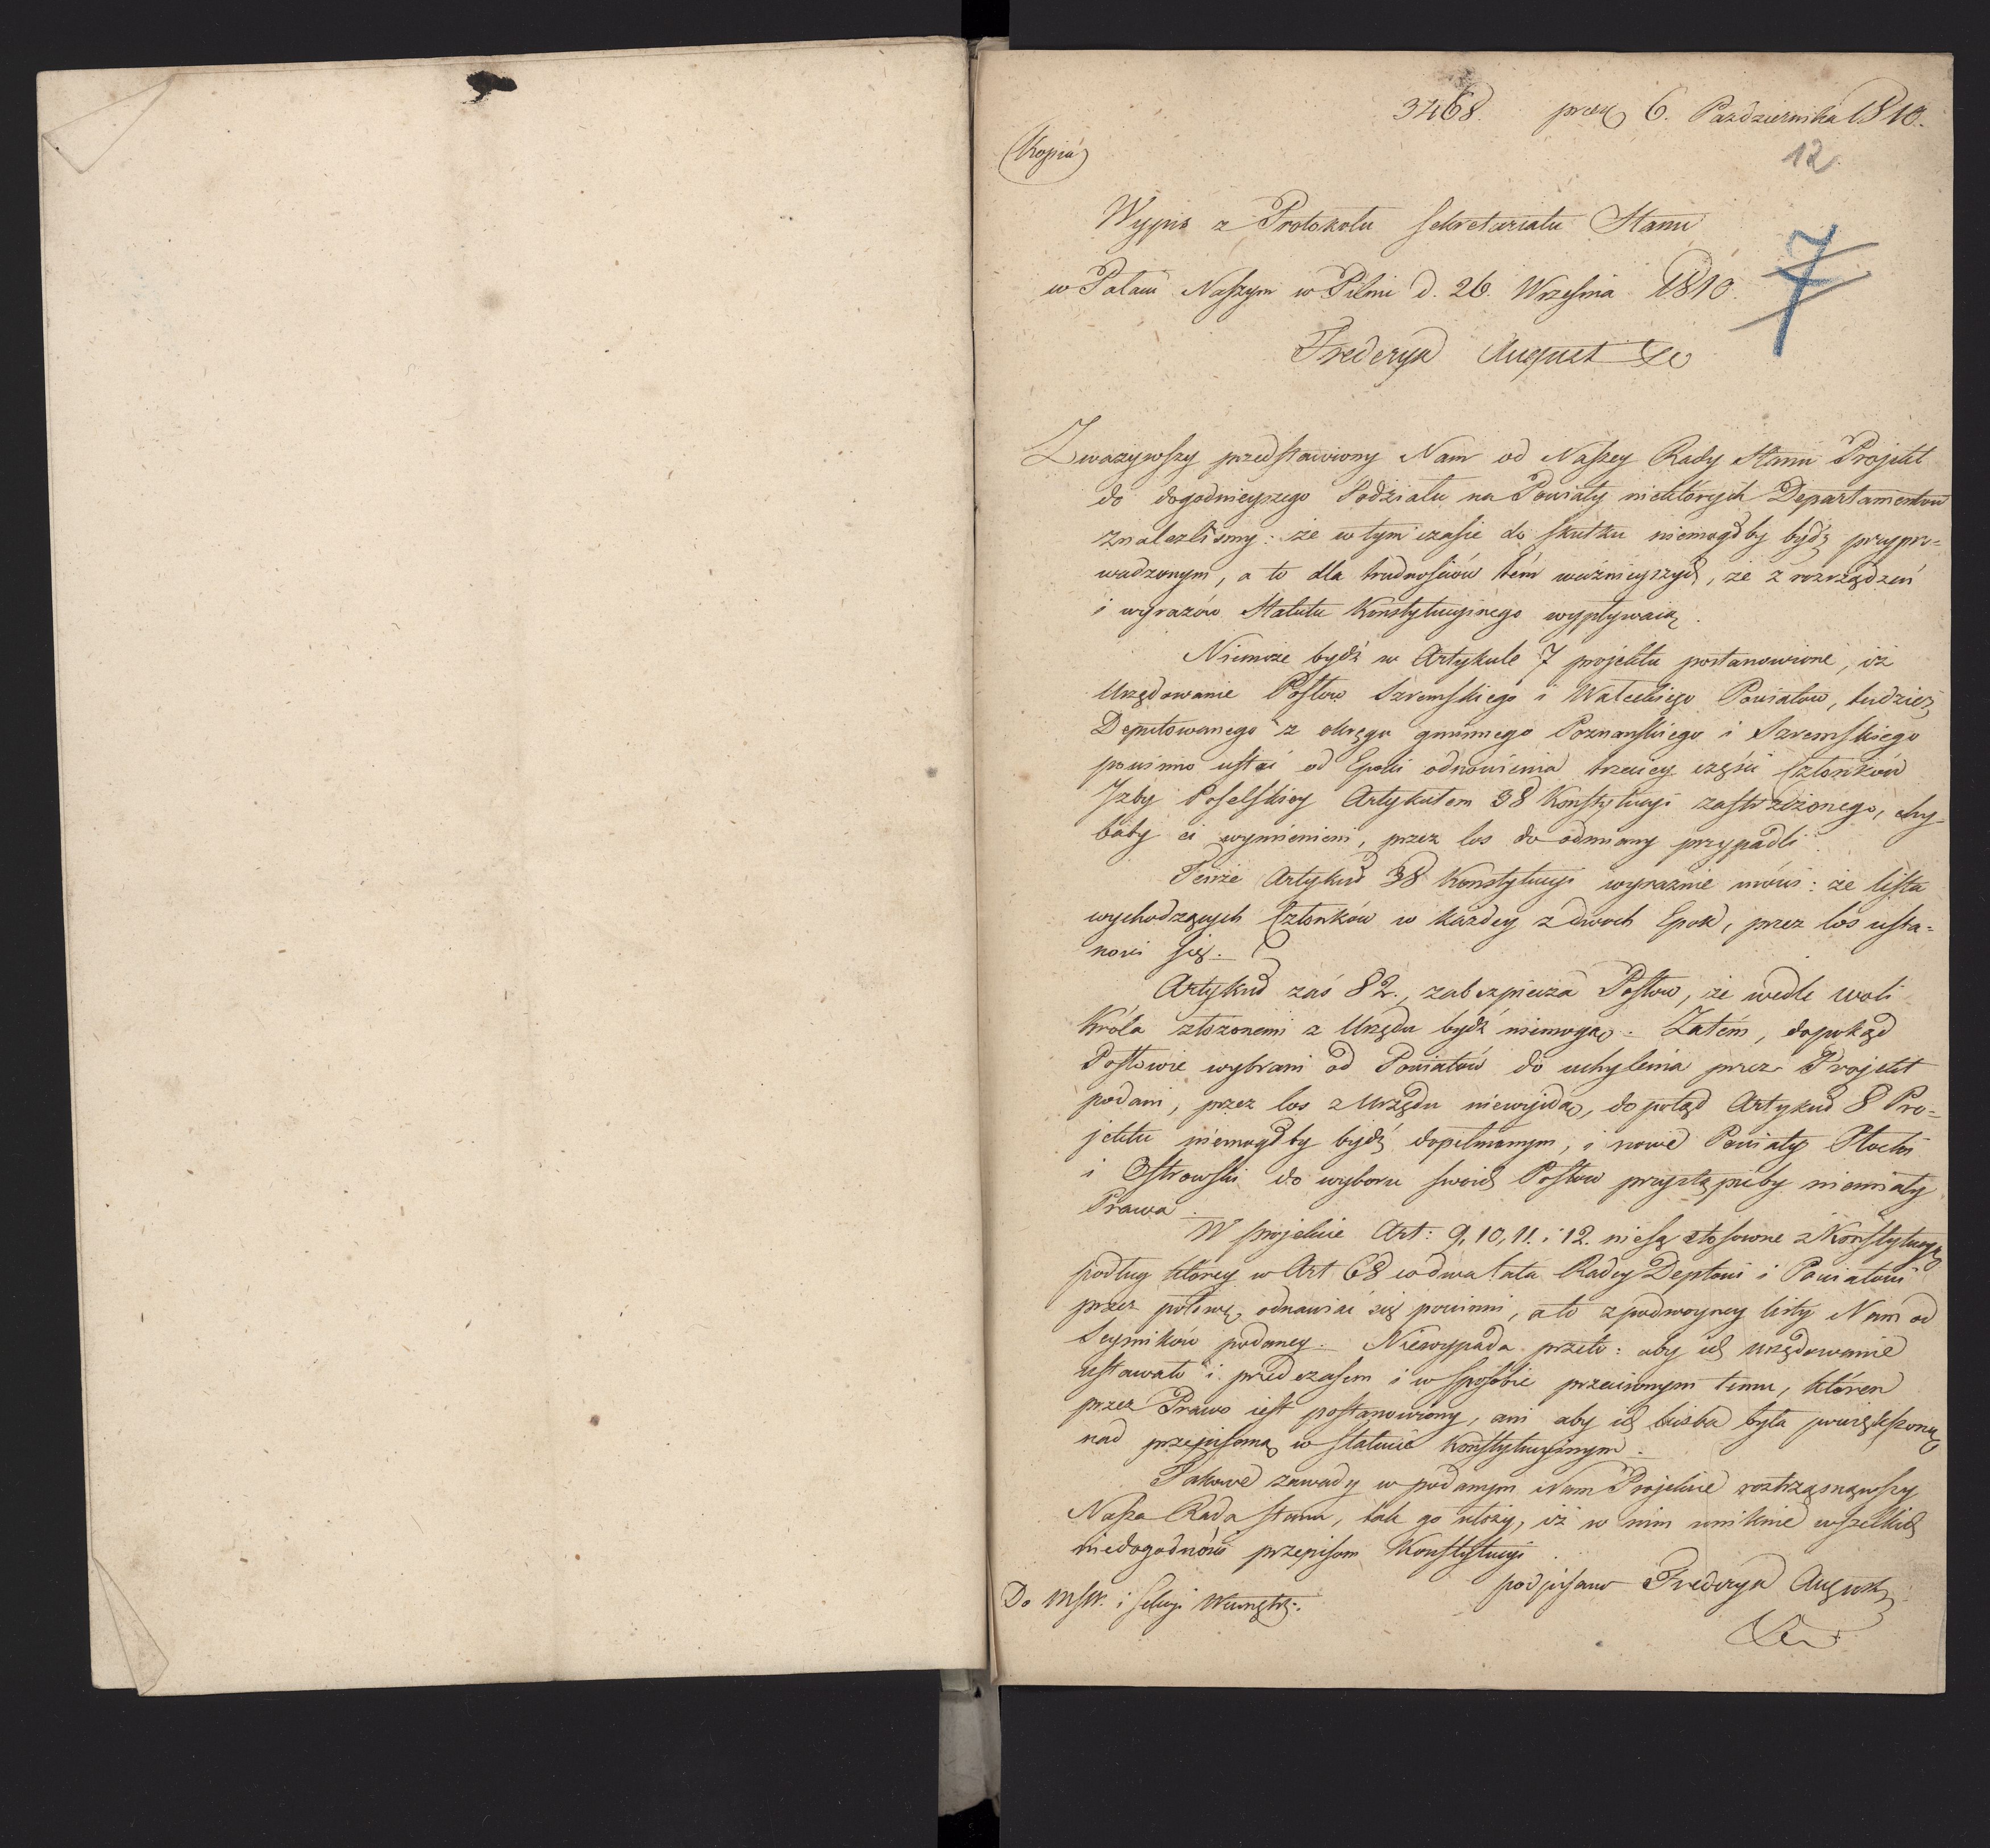 3468. prez 6. Pazdziernika 1810.
12.
(Kopia)
Wypis z Protokołu Sekretariatu Stanu
w Pałacu Naszym w Pilnic d. 26. Września 1810.
7
Frederyk August &c
Zważywszy przedstawiony Nam od Naszey Rady Stanu Projekt
do dogodnieyszego Podziału na Powiaty niektórych Departamentow
znalezlismy: że w tym czasie do skutku niemogłby bydź przypro=
wadzonym, a to dla trudnościow tém ważnieyszych, że z rozrządzeń
i wyrazów Statutu Konstytucyinego wypływaią.
Niemoże bydź w Artykule 7 projektu postanowione, iż
Urzędowanie Posłow Szremskiego i Wałeckiego Powiatow, tudzież
Deputowanego z okręgu gminnego Poznanskiego i Szremskiego
powinno ustać od Epoki odnowienia trzeciey części Członkow
Izby Poselskiey Artykułem 38 Konstytucyi zastrzeżonego, chy=
baby ci wymienieni, przez los do odmiany przypadli.
Tenże Artykuł 38 Konstytucyi wyraznie mówi: że lista
wychodzących Członków w każdey z dwoch Epok, przez los usta=
nowi się.
Artykuł zaś 82., zabezpiecza Posłow, że wedle woli
Króla złożonemi z Urzędu bydź niemogą. Zatém, dopokąd
Posłowie wybrani od Powiatów do uchylenia przez Projekt
podani, przez los z Urzędu niewyidą, do potąd Artykuł 8 Pro=
jektu niemogłby bydź dopełnionym, i nowe Powiaty Płocki
i Ostrowski do wyboru swoich Posłow przystąpićby niemiały
Prawa.
W projekcie Art: 9, 10, 11. i 12. niesą stosowne z Konstytucyą
podług którey w Art 68 co dwa lata Rady Deptowi i Powiatowi
przez połowę odnawiać się powinni, a to z podwoyney listy Nam od
Seymików podaney. Niewypada przeto: aby ich urzędowanie
ustawało i przed czasem i w sposobie przeciwnym temu, któren
przez Prawo iest postanowiony, ani aby ich liczba była powiększoną
nad przepisaną w statucie Konstytucyinym.
Takowe zawady w podanym Nam Projekcie roztrząsnąwszy
Nasza Rada Stanu, tak go ułoży, iż w nim uniknie wszelkich
niedogodności przepisom Konstytucyi
podpisano Frederyk August
Do MSW. i Sekcyi Wewnętrz:.